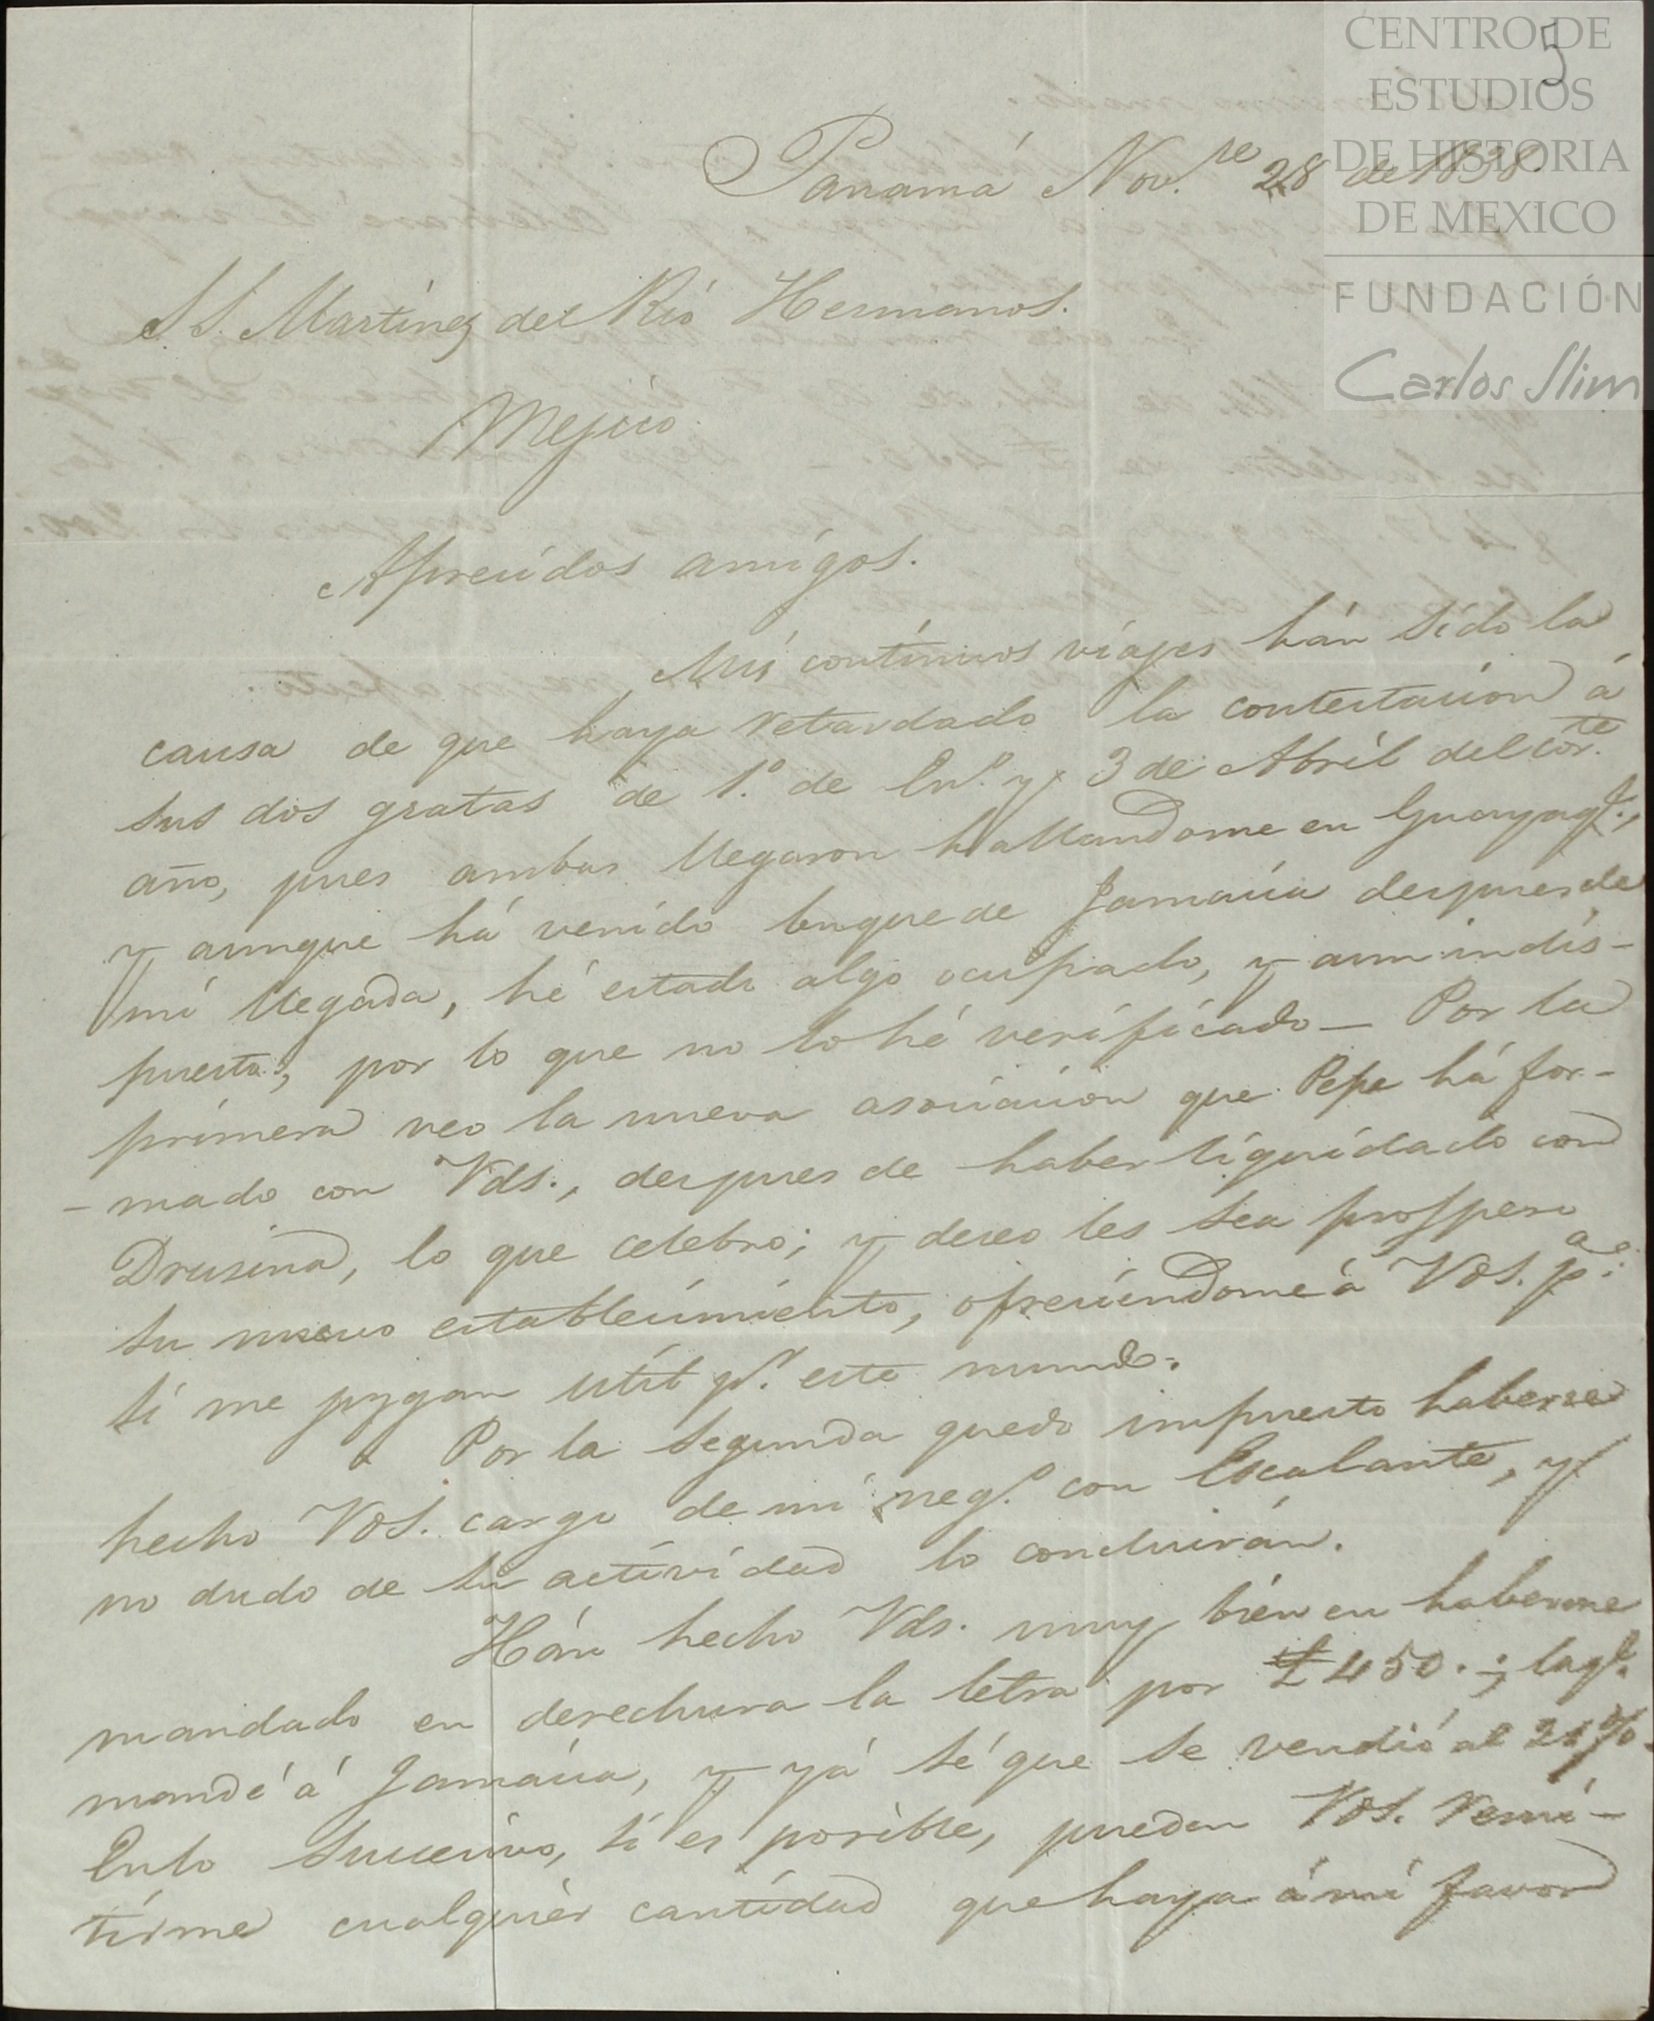 CENTRO DE
ESTUDIOS
DE HISTORIA
DE MEXICO
FUNDACIÓN
Carlos Slim
5
Panamá Nov.re 28 de 1838.
S S. Martinez del Rió Hermanos.
Mejico.
Aprecidos amigos.
Mis contínuos víajes hán sído la
causa de que haya retardado la contestacion á
sus dos gratas de 1.º de En.º y 3 de Abríl del cor.te
año, pues ambas llegaron hallandome en Guayaq.l,
y aunque há venído buque de Jamaica despues de
mí llegada, hé estado algo ocupado, y aun indís-
puesto, por lo que no lo hé verífícado — Por la
prímera veo la nueva asociacion que Pepe há for-
-mado con Vds., despues de haber líquidado con
Drusina, lo que celebro; y deseo les sea prospero
su nuevo establecimiento, ofreciendome á Vds. p.a
sí me juzgan utíl p.r este mundo.
Por la segunda quedo impuesto haberse
hecho Vds. cargo de mí neg.o con Escalante, y
no dudo de su actívídad lo concluirán.
Hán hecho Vds. muy bien en haberme
mandado en derechura la letra por £450.; la q.e
mandé á Jamaíca, y yá sé que se vendió al 21%.
En lo sucesivo, sí es posible, pueden Vds. remí-
tírme cualquiér cantídad que haya á mí favor